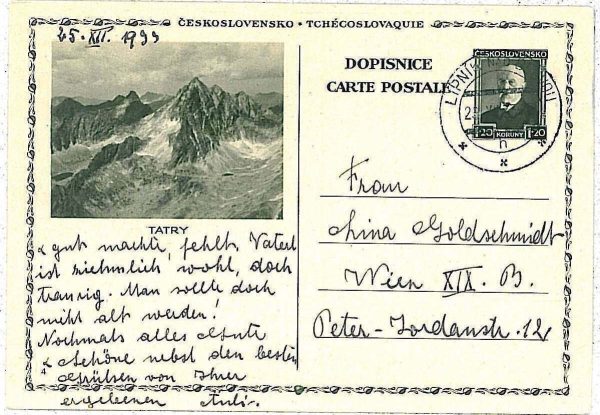 ČESKOSLOVENSKO • TCHÉCOSLOVAQUIE
25. XII. 1933
DOPISNICE
CARTE POSTALE
ČESKOSLOVENSKO
1·20 KORUNY 1·20
LIPNÍK
TATRY
& gut macht, fehlt. Vaterl
ist ziehmlich wohl, doch
traurig. Man sollte doch
nicht alt werden!
Nochmals alles Gute
& Schöne nebst den besten
Grüßen von Ihrer
ergebenen
Frau
Goldschmidt
Wien XIX. B.
Peter-Jordanstr. 12